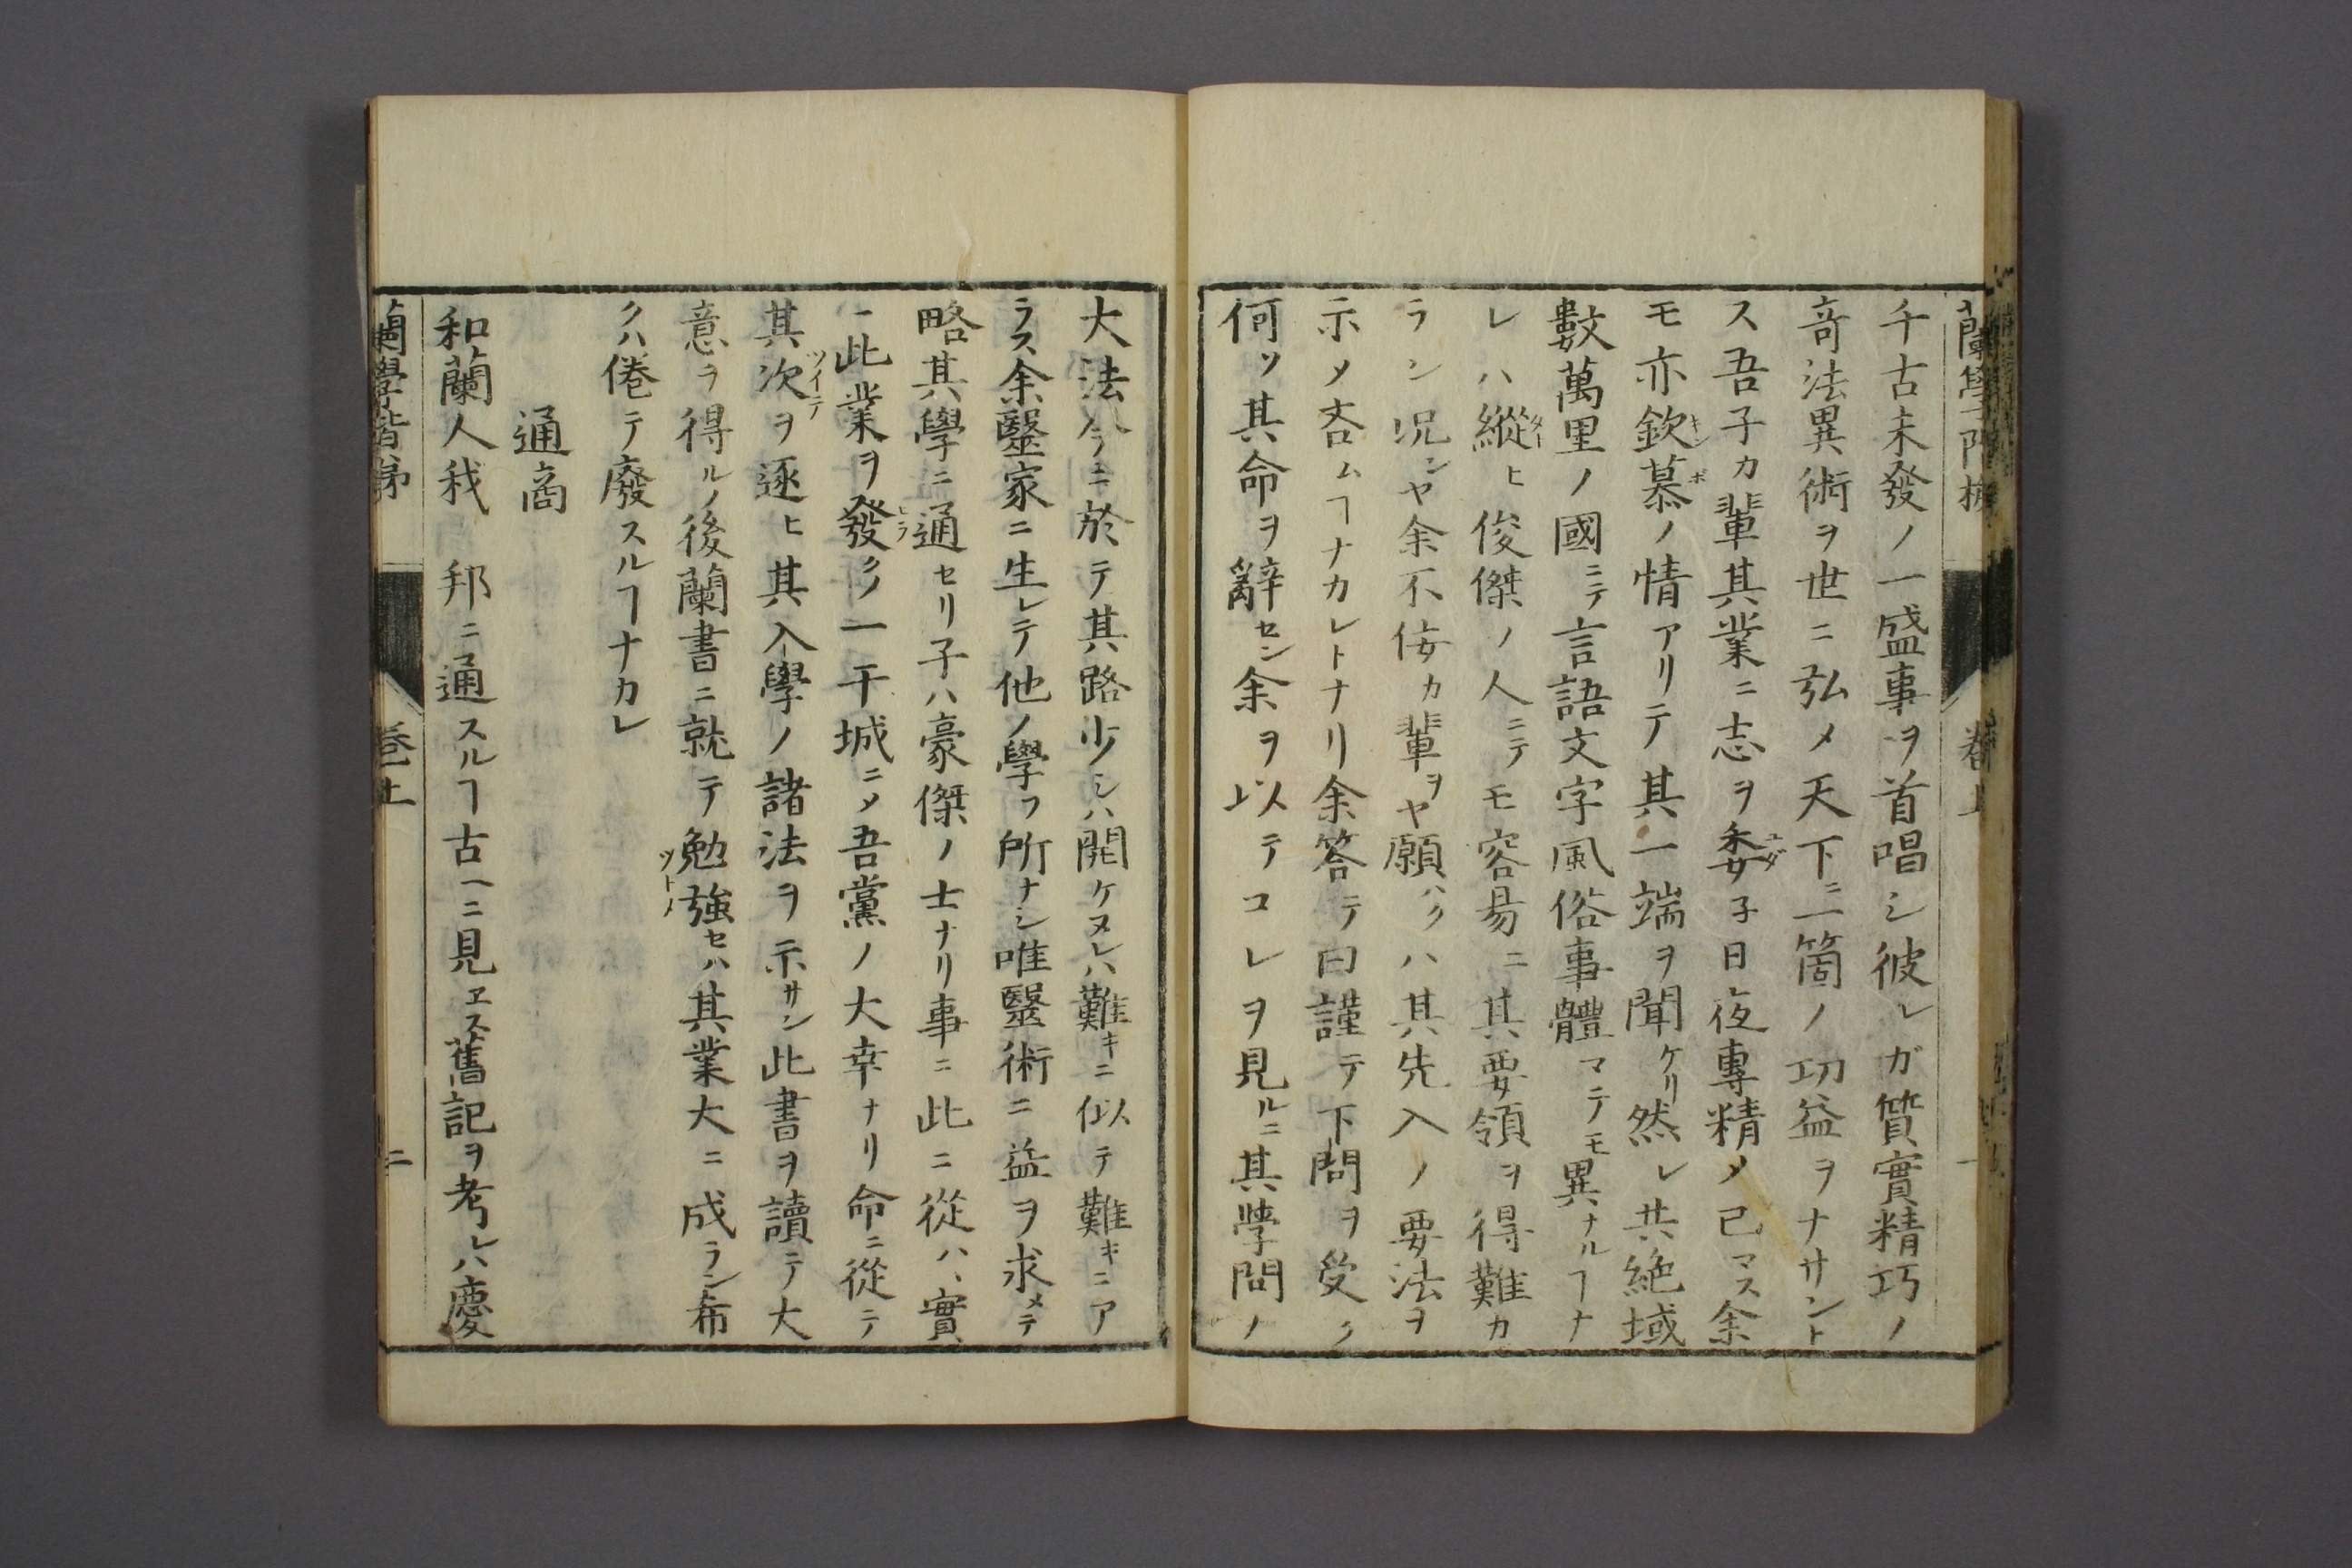 蘭學階梯 卷上 一
千古未發ノ一盛事ヲ首唱シ彼レガ質實精巧ノ
奇法異術ヲ世ニ弘メ天下ニ一箇ノ功益ヲナサント
ス吾子カ輩其業ニ志ヲ委子日夜專精メ已マス余
モ亦欽慕ノ情アリテ其一端ヲ聞ケリ然レ共絶域
數萬里ノ國ニテ言語文字風俗事體マテモ異ナルヿナ
レハ縱ヒ俊傑ノ人ニテモ容易ニ其要領ヲ得難カ
ラン况ンヤ余不侫カ輩ヲヤ願ハクハ其先入ノ要法ヲ
示メ吝ムヿナカレトナリ余答テ曰謹テ下問ヲ受ク
何ソ其命ヲ辭セン余ヲ以テコレヲ見ルニ其學問ノ
大法今ニ於テ其路少シハ開ケヌレハ難キニ似テ難キニア
ラス余醫家ニ生レテ他ノ學フ所ナシ唯醫術ニ益ヲ求メテ
略其學ニ通セリ子ハ豪傑ノ士ナリ事ニ此ニ從ハヽ實
ニ此業ヲ發クノ一干城ニメ吾黨ノ大幸ナリ命ニ從テ
其次ヲ逐ヒ其入學ノ諸法ヲ示サン此書ヲ讀ニテ大
意ヲ得ルノ後蘭書ニ就テ勉強セハ其業大ニ成ラン希
クハ倦テ廢スルヿナカレ
通商
和蘭人我 邦ニ通スルヿ古ヘニ見ヱス舊記ヲ考レハ慶
蘭學階梯 卷上 二